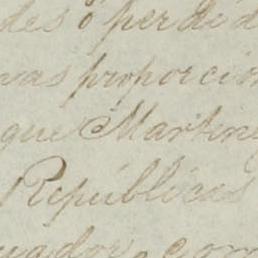 des o perdid
vas proporcion
que Martine
Repúblicas
uador, com